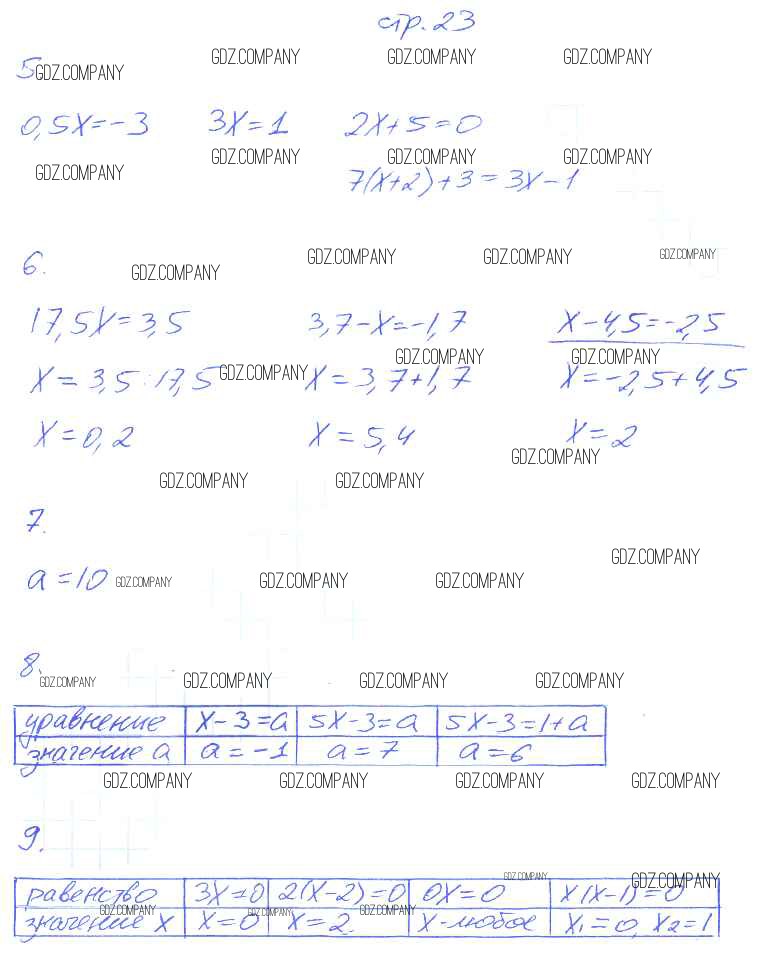 стр. 23
GDZ.COMPANY GDZ.COMPANY GDZ.COMPANY
5 GDZ.COMPANY
0,5x=-3 3x=1 2x+5=0
GDZ.COMPANY GDZ.COMPANY GDZ.COMPANY
GDZ.COMPANY
7(x+2)+3=3x-1
GDZ.COMPANY GDZ.COMPANY GDZ.COMPANY
6. GDZ.COMPANY
17,5x=3,5 3,7-x=-1,7 x-4,5=-2,5
GDZ.COMPANY GDZ.COMPANY
x=3,5:17,5 GDZ.COMPANY x=3,7+1,7 x=-2,5+4,5
x=0,2 x=5,4 x=2
GDZ.COMPANY
GDZ.COMPANY GDZ.COMPANY
7.
GDZ.COMPANY
a=10 GDZ.COMPANY GDZ.COMPANY GDZ.COMPANY
8. GDZ.COMPANY GDZ.COMPANY GDZ.COMPANY GDZ.COMPANY
уравнение x-3=a 5x-3=a 5x-3=1+a
значение a a=-1 a=7 a=6
GDZ.COMPANY GDZ.COMPANY GDZ.COMPANY GDZ.COMPANY
9.
GDZ.COMPANY GDZ.COMPANY
равенство 3x=0 2(x-2)=0 0x=0 x(x-1)=0
GDZ.COMPANY GDZ.COMPANY GDZ.COMPANY
значение x x=0 x=2. x-любое x₁=0, x₂=1